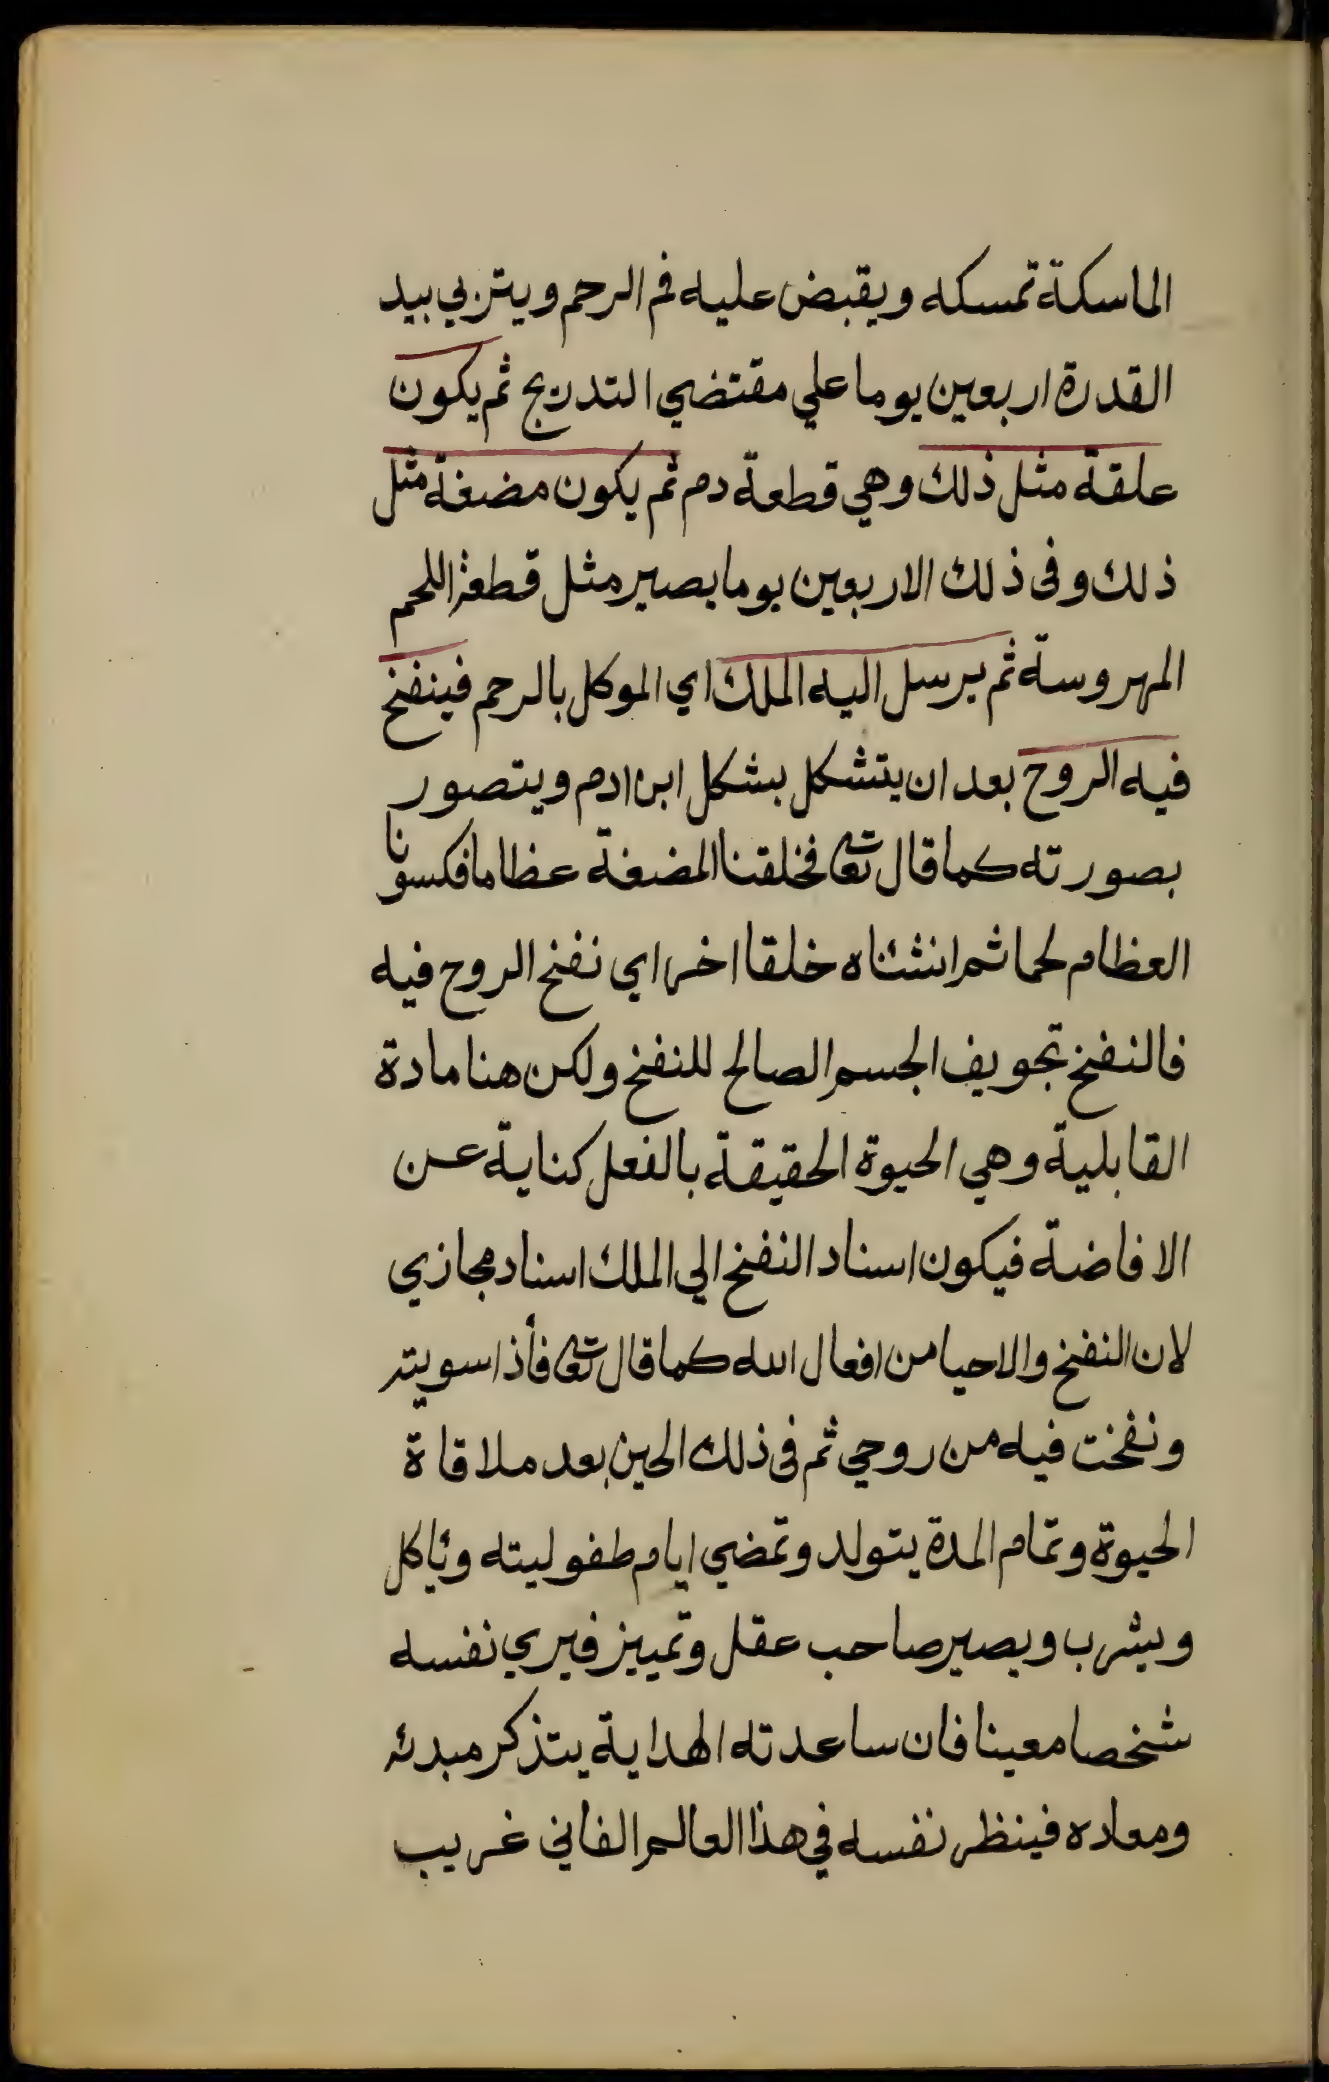 الماسكة تمسكه ويقبض عليه فم الرحم ويتربي بيد
القدرة اربعين يوما علي مقتضي التدريج ثم يكون
علقة مثل ذلك وهي قطعة دم ثم يكون مضغة مثل
ذلك وفي ذلك الاربعين يوما يصير مثل قطعة اللحم
المهروسة ثم يرسل اليه الملك اي الموكل بالرحم فينفخ
فيه الروح بعد ان يتشكل بشكل ابن ادم ويتصور
بصورته كما قال تعا فخلقنا المضغة عظاما فكسونا
العظام لحما ثم انشئناه خلقا اخر اي نفخ الروح فيه
فالنفخ تجويف الجسم الصالح للنفخ ولكن هنا مادة
القابلية وهي الحيوة الحقيقة بالفعل كناية عن
الافاضة فيكون اسناد النفخ الي الملك اسناد مجازي
لان النفخ والاحيا من افعال الله كما قال تعا فأذا سويته
ونفخت فيه من روحي ثم في ذلك الحين بعد ملاقاة
الحيوة وتمام المدة يتولد وتمضي ايام طفوليته وياكل
ويشرب ويصير صاحب عقل وتمييز فيري نفسه
شخصا معينا فان ساعدته الهداية يتذكر مبدئه
ومعاده فينظر نفسه في هذا العالم الفاني غريب